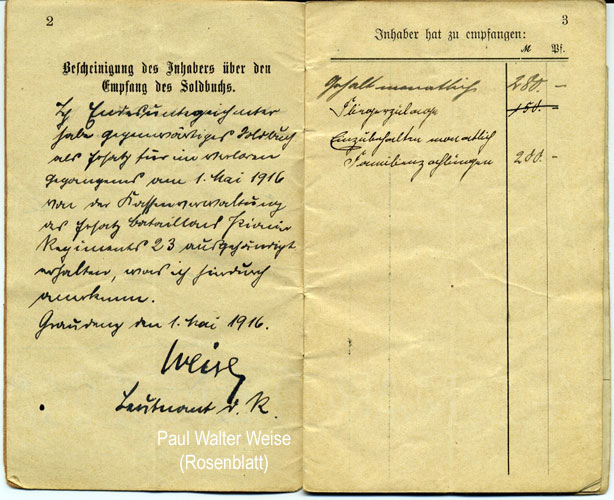 2
Bescheinigung des Inhabers über den
Empfang des Soldbuchs.
Ich Endesunterzeichneter
habe gegenwärtiges Soldbuch
als Ersatz für im verloren
gegangens am 1. Mai 1916
von der Kassenverwaltung
des Ersatz Bataillons Pionir
Regiments 23 ausgehändigt
erhalten, was ich hindurch
anerkenne.
Graudenz den 1. Mai 1916.
Weise
Leutnant d. R.
Paul Walter Weise
(Rosenblatt)
3
Inhaber hat zu empfangen:
M Pf.
Gehalt monatlich 280. –
Fliegerzulage 150. –
Einzubehalten monatlich
Familienzahlungen 200. –